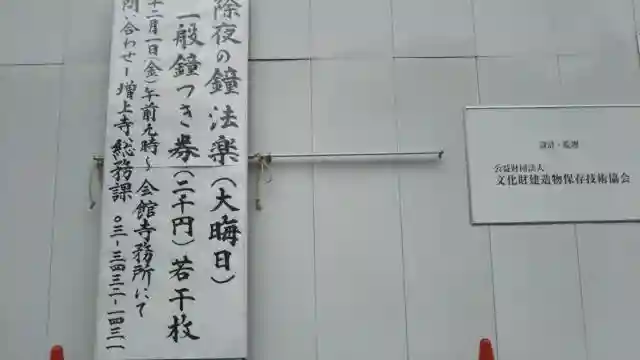 除夜の鐘法楽(大晦日)
一般鐘つき券(二千円)若干枚
十二月一日(金)午前九時~会館寺務所にて
問い合わせー増上寺総務課 〇三ー三四三二ー一四三一
設計・監理
公益財団法人
文化財建造物保存技術協会